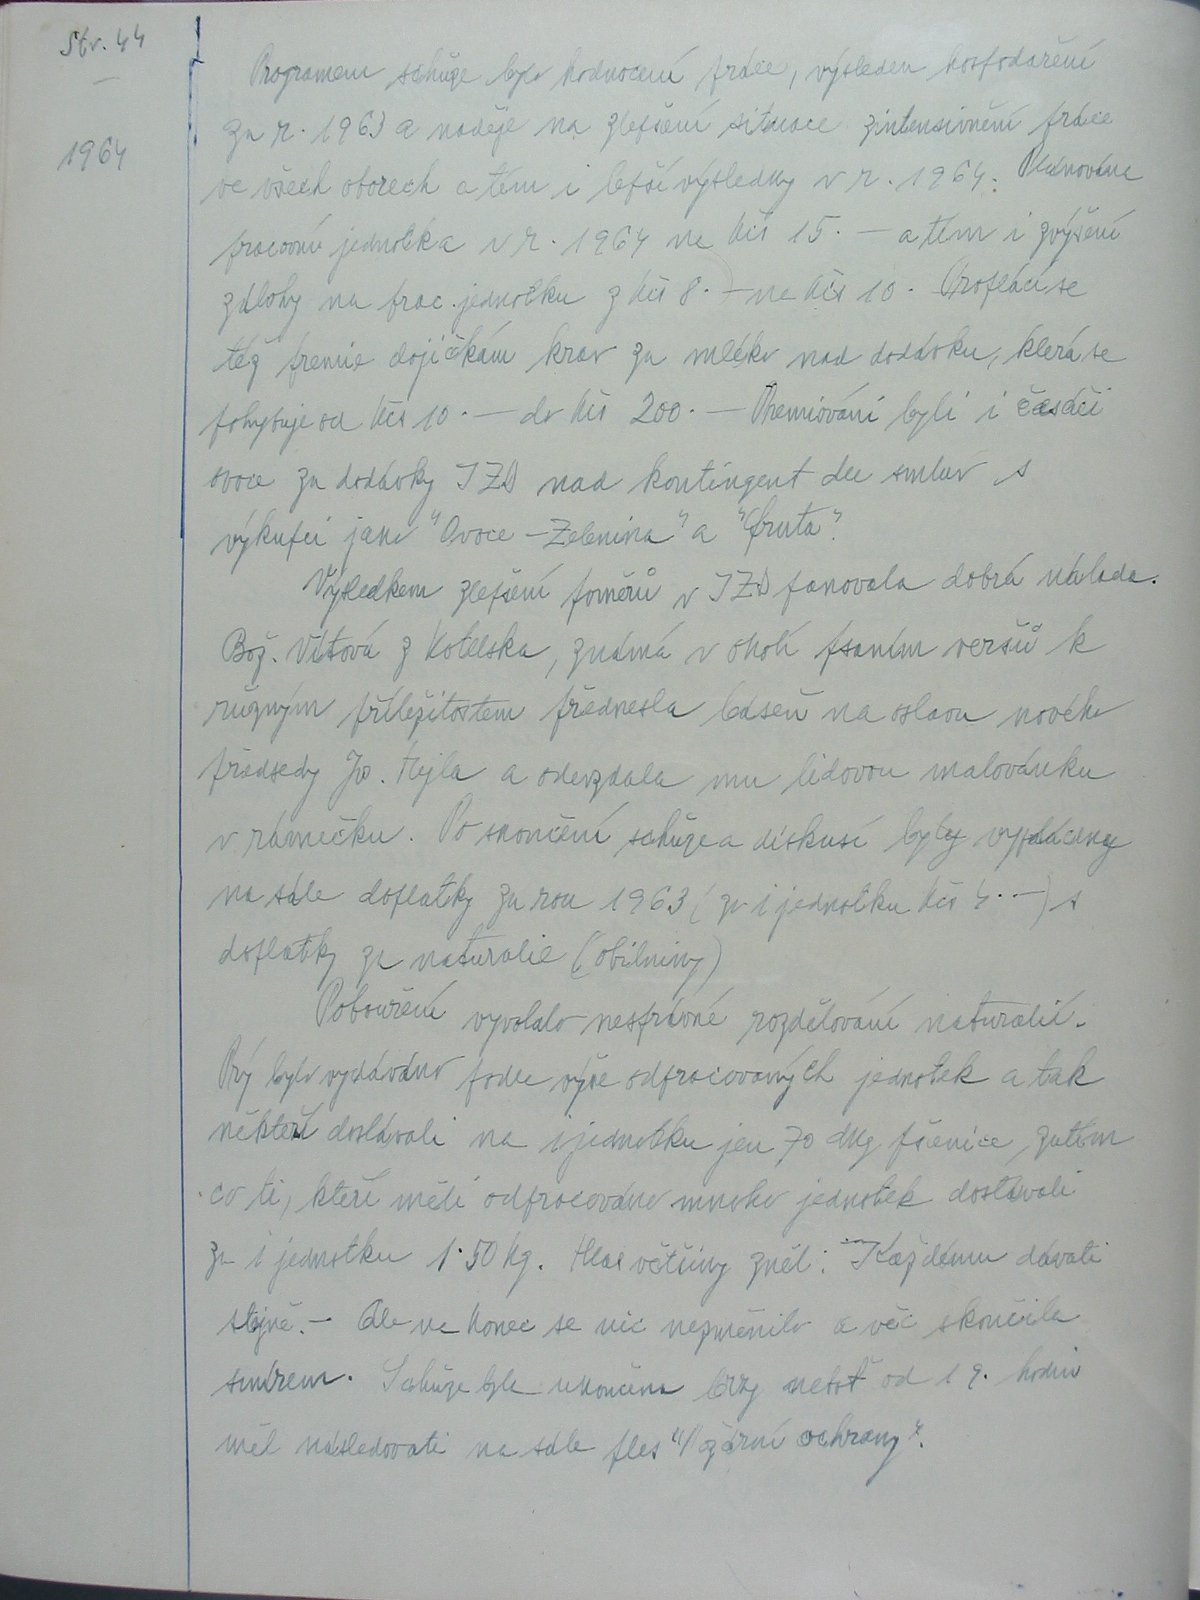 Str. 44
1964
Programem schůze bylo hodnocení práce, výsledek hospodaření
za r. 1963 a naděje na zlepšení situace zintensivnění práce
ve všech oborech a tím i lepší výsledky v r. 1964. Plánována
pracovní jednotka v r. 1964 na Kčs 15.— a tím i zvýšení
zálohy na prac. jednotku z Kčs 8.— na Kčs 10. Proplácí se
též premie dojičkám krav za mléko nad dodávku, která se
pohybuje od Kčs 10.— do Kčs 200.— Premiováni byli i česáči
ovoce za dodávky JZD nad kontingent dle smluv s
výkupci jako "Ovoce-Zelenina" a "Fruta".
Výsledkem zlepšení poměrů v JZD panovala dobrá nálada.
Bož. Vítová z Kotelska, známá v okolí psaním veršů k
různým příležitostem přednesla báseň na oslavu nového
předsedy Jos. Hejla a odevzdala mu lidovou malovánku
v rámečku. Po skončení schůze a diskusí byly vypláceny
na sále doplatky za rok 1963 (za 1 jednotku Kčs 4.—) s
doplatky za naturalie (obilniny)
Pobouření vyvolalo nesprávné rozdělování naturalií.
Prý bylo vydáváno podle výše odpracovaných jednotek a tak
někteří dostávali na 1 jednotku jen 70 dkg pšenice, zatím
co ti, kteří měli odpracováno mnoho jednotek dostávali
za 1 jednotku 1.50 kg. Hlas většiny zněl: "Každému dávati
stejně.— Ale na konec se nic nezměnilo a věc skončila
smírem. Schůze byla ukončena brzy neboť od 19. hodin
měl následovati na sále ples "Požární ochrany".